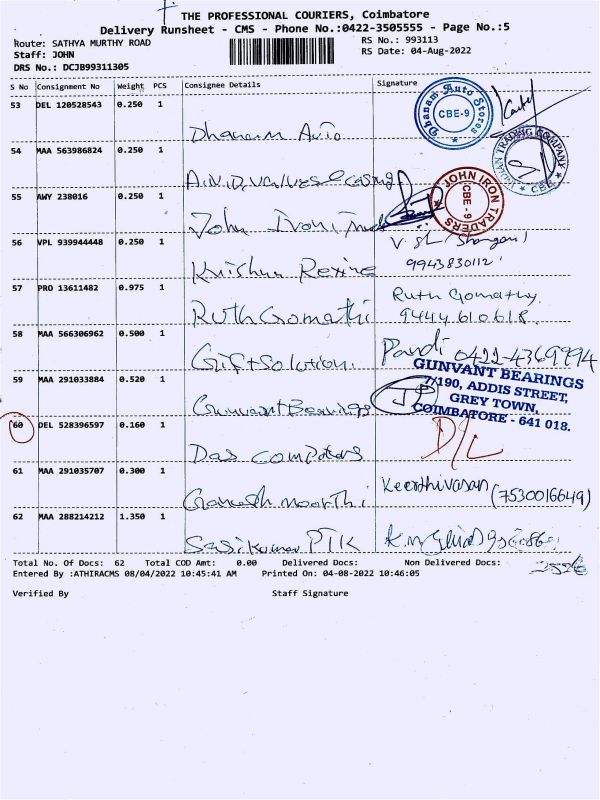 THE PROFESSIONAL COURIERS, Coimbatore
Delivery Runsheet - CMS - Phone No.:0422-3505555 - Page No.:5
Route: SATHYA MURTHY ROAD
Staff: JOHN
DRS No.: DCJB99311305
RS No.: 993113
RS Date: 04-Aug-2022
S No Consignment No Weight PCS Consignee Details Signature
53 DEL 120528543 0.250 1
Dhanam Auto
Dhanam Auto Stores CBE-9
54 MAA 563986824 0.250 1
A.N.D. Valves & casting
INDIAN TRADING COMPANY CBE
55 AWY 238016 0.250 1
John Iron
JOHN IRON TRADERS CBE - 9
56 VPL 939944448 0.250 1
Krishna Rexine
9943830112
57 PRO 13611482 0.975 1
Ruth Gomathi
Ruth Gomathy.
9444 610618
58 MAA 566306962 0.500 1
Gift Solution.
Pandi 0422-4369994
59 MAA 291033884 0.520 1
Gunvant Bearings
GUNVANT BEARINGS
7/190, ADDIS STREET,
GREY TOWN,
COIMBATORE - 641 018.
60 DEL 528396597 0.160 1
Das Computers
D/L
61 MAA 291035707 0.300 1
Ganesh moorthi
Keerthivasan (7530016649)
62 MAA 288214212 1.350 1
Sasikumar PTK
Total No. Of Docs: 62 Total COD Amt: 0.00 Delivered Docs: Non Delivered Docs:
Entered By :ATHIRACMS 08/04/2022 10:45:41 AM Printed On: 04-08-2022 10:46:05
Verified By Staff Signature